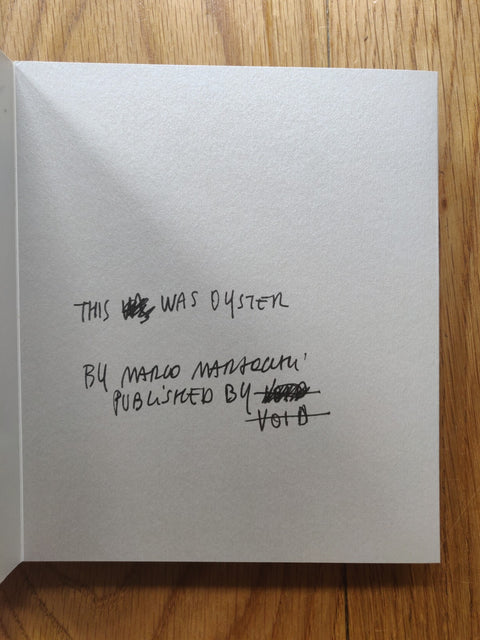 THIS WAS OYSTER
BY MARCO MARZOCCHI
PUBLISHED BY
VOID